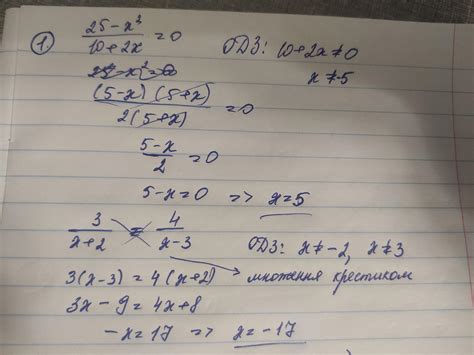 ① 25-x²/10+2x = 0   ОДЗ: 10+2x≠0
x≠5
(5-x)(5+x)/2(5+x) = 0
5-x/2 = 0
5-x=0 => x=5
3/x+2 = 4/x-3   ОДЗ: x≠-2, x≠3
3(x-3)=4(x+2) множення крестиком
3x-9=4x+8
-x=17 => x=-17